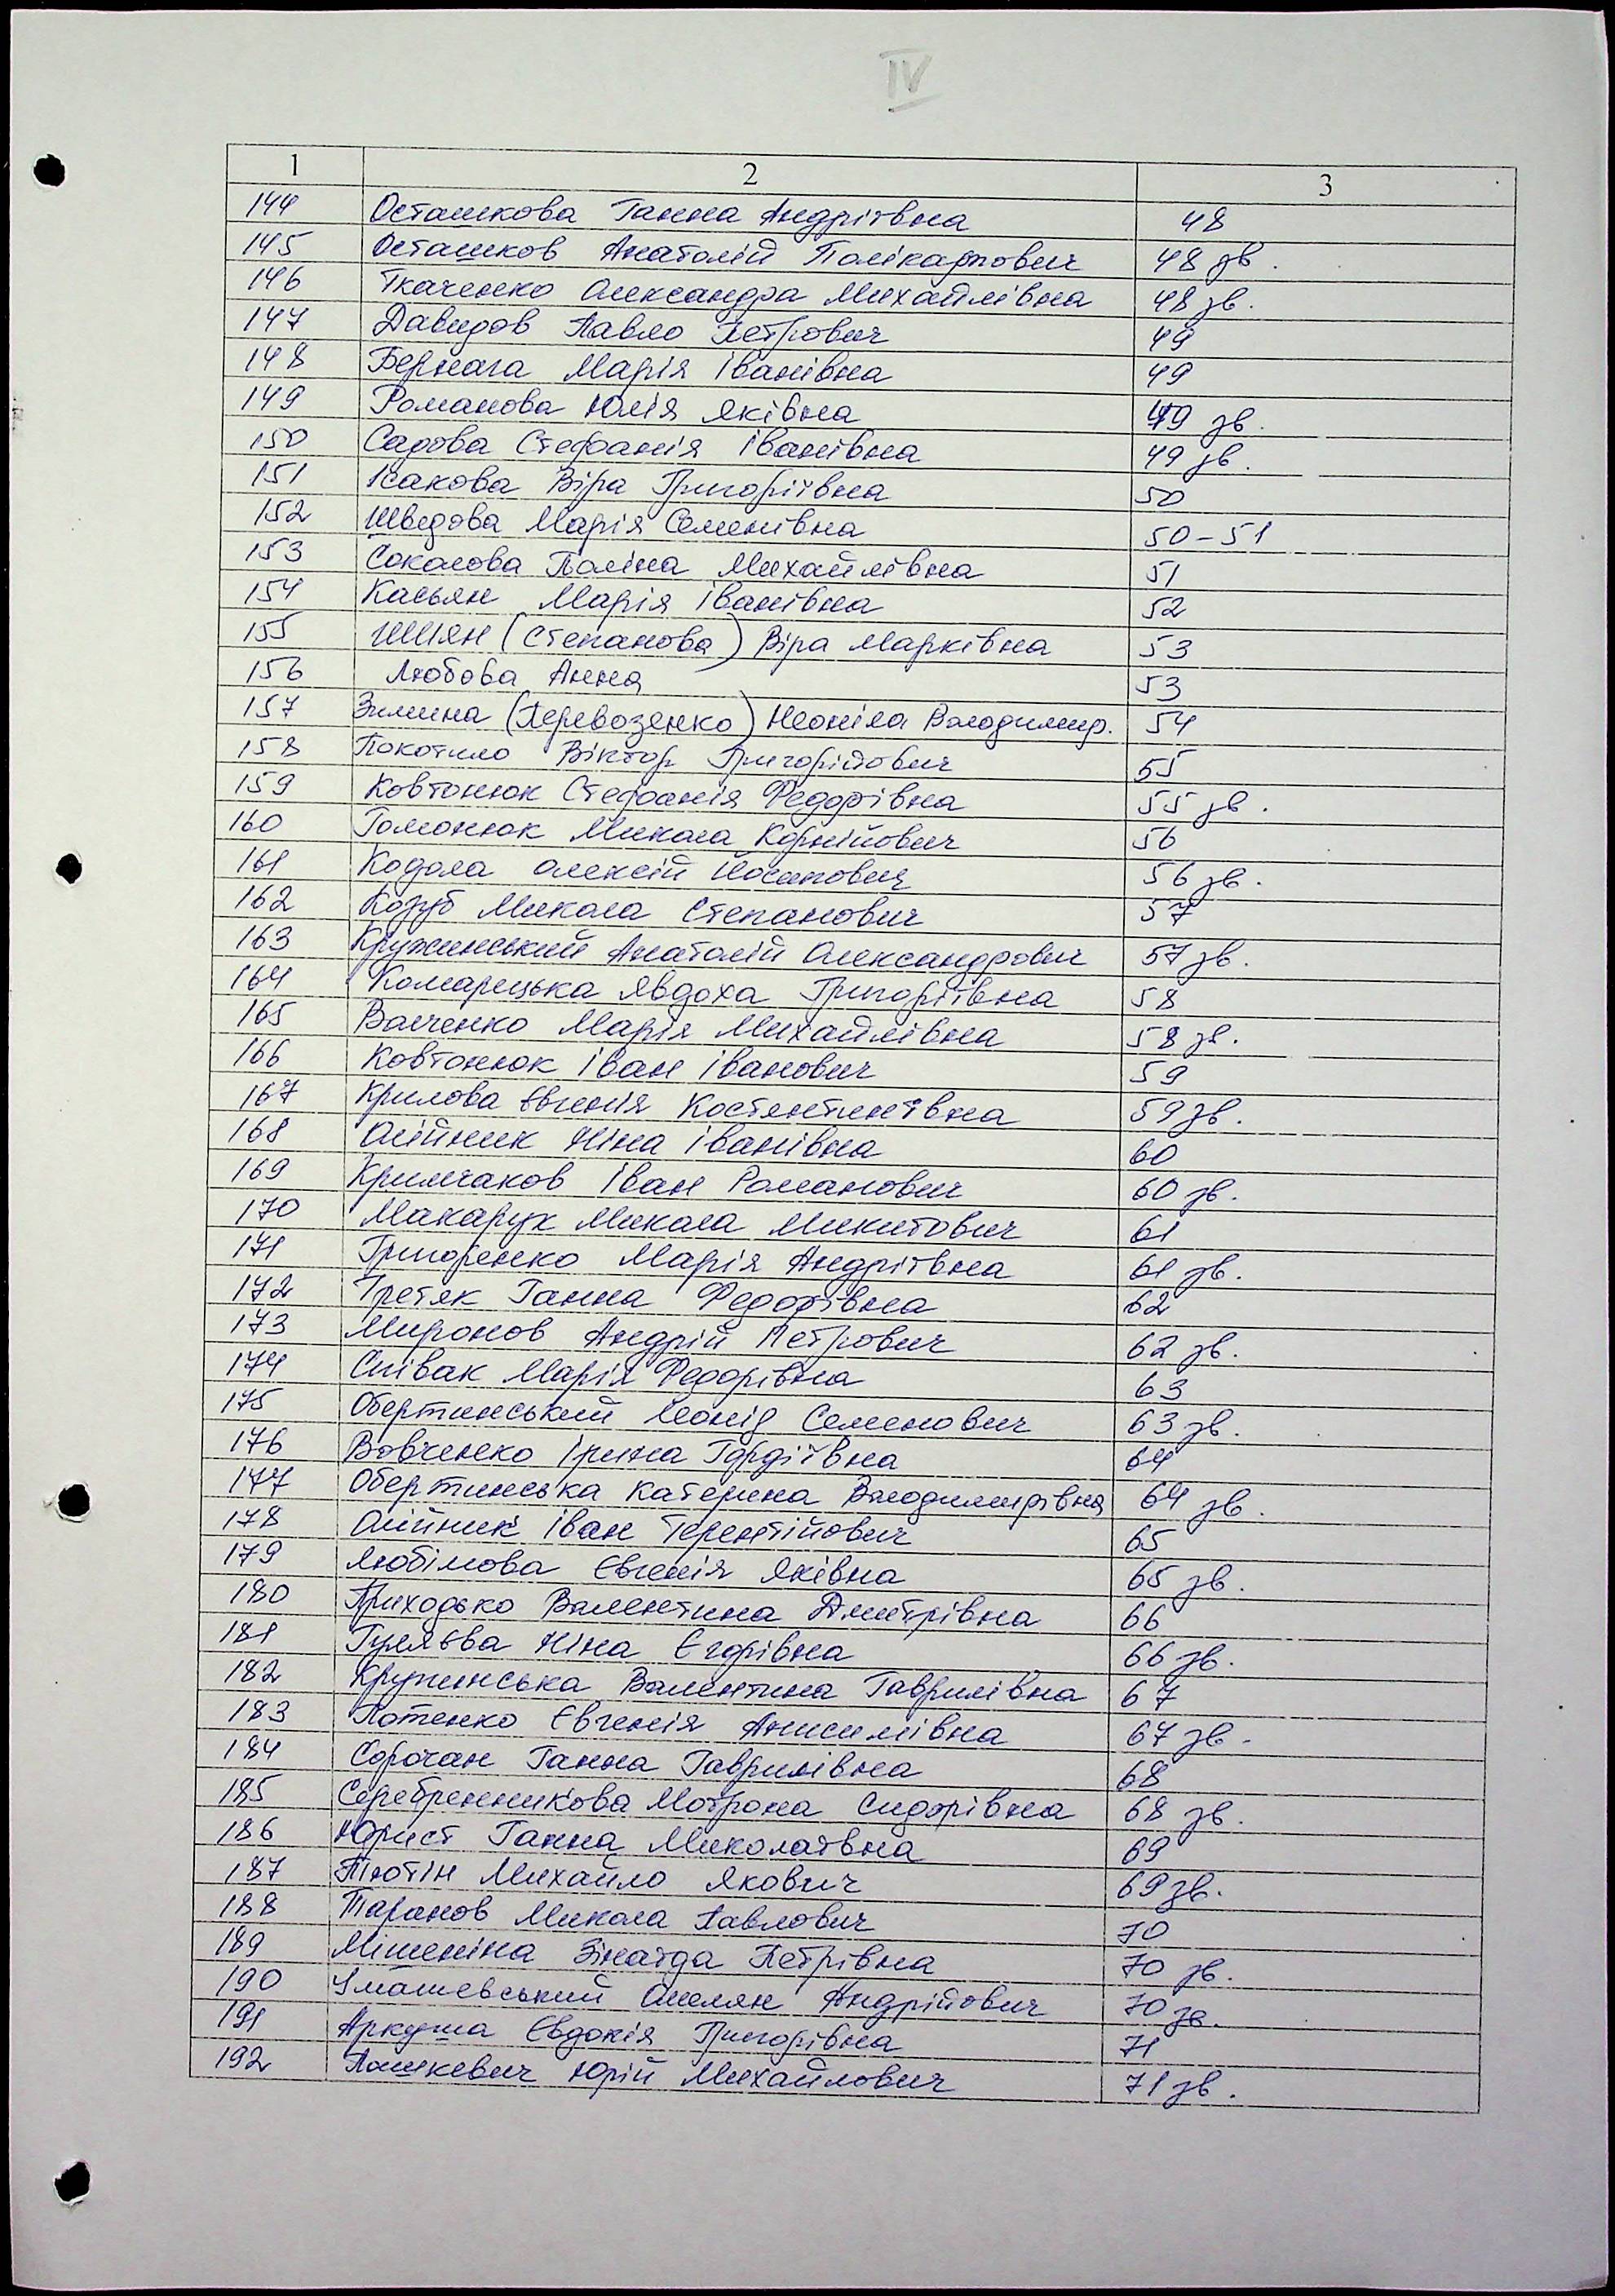 IV
1 2 3
144 Осташкова Ганна Андріївна 48
145 Осташков Анатолій Полікарпович 48 зв.
146 Ткаченко Олександра Михайлівна 48 зв.
147 Давидов Павло Петрович 49
148 Бернага Марія Іванівна 49
149 Романова Юлія Яківна 49 зв.
150 Садова Стефанія Іванівна 49 зв.
151 Ісакова Віра Григоріївна 50
152 Шведова Марія Семенівна 50-51
153 Соколова Поліна Михайлівна 51
154 Касьян Марія Іванівна 52
155 Шиян (Степанова) Віра Марківна 53
156 Любова Анна 53
157 Зимина (Перевозенко) Неоніла Володимир. 54
158 Покотило Віктор Григорійович 55
159 Ковтонюк Стефанія Федорівна 55 зв.
160 Гомонюк Микола Корнійович 56
161 Кодола Олексій Йосипович 56 зв.
162 Козуб Микола Степанович 57
163 Кружинський Анатолій Олександрович 57 зв.
164 Комарецька Явдоха Григоріївна 58
165 Волченко Марія Михайлівна 58 зв.
166 Ковтонюк Іван Іванович 59
167 Крилова Євгенія Костянтинівна 59 зв.
168 Олійник Ніна Іванівна 60
169 Кримчаков Іван Романович 60 зв.
170 Макарук Микола Микитович 61
171 Григоренко Марія Андріївна 61 зв.
172 Третяк Ганна Федорівна 62
173 Миронов Андрій Петрович 62 зв.
174 Співак Марія Федорівна 63
175 Обертинський Леонід Семенович 63 зв.
176 Вовченко Ірина Гордіївна 64
177 Обертинська Катерина Володимирівна 64 зв.
178 Олійник Іван Терентійович 65
179 Любімова Євгенія Яківна 65 зв.
180 Приходько Валентина Дмитрівна 66
181 Гуляєва Ніна Єгорівна 66 зв.
182 Кружинська Валентина Гаврилівна 67
183 Потенко Євгенія Анисимівна 67 зв.
184 Сорочан Ганна Гаврилівна 68
185 Серебренникова Мотрона Сидорівна 68 зв.
186 Юрист Ганна Миколаївна 69
187 Тютін Михайло Якович 69 зв.
188 Таранов Микола Павлович 70
189 Мішеніна Зінаїда Петрівна 70 зв.
190 Омелян Андрійович 70 зв.
191 Аркуша Євдокія Григорівна 71
192 Пашкевич Юрій Михайлович 71 зв.